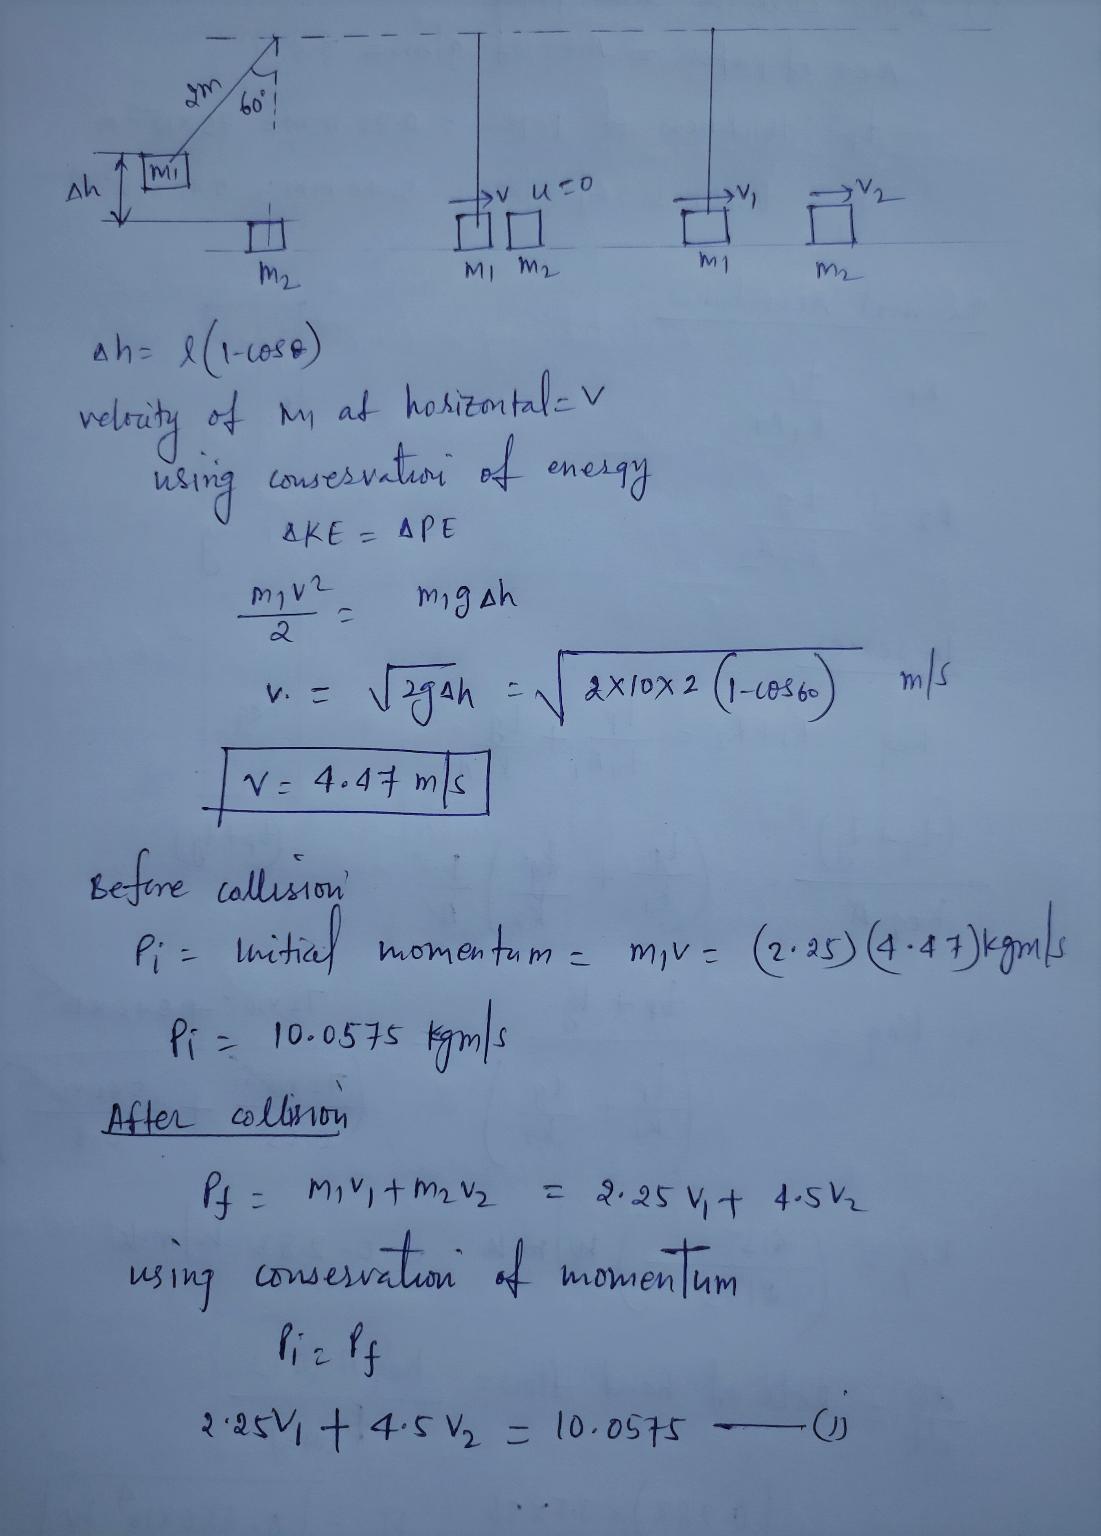 2m
60°
Δh
m1
m2
v u=0
m1 m2
v1
m1
v2
m2
Δh = l(1-cosθ)
velocity of m1 at horizontal = v
using conservation of energy
ΔKE = ΔPE
m1v²/2 = m1gΔh
v. = √2gΔh = √2×10×2(1-cos60) m/s
v = 4.47 m/s
Before collision
Pi = Initial momentum = m1v = (2.25)(4.47)kgm/s
Pi = 10.0575 kgm/s
After collision
Pf = m1v1 + m2v2 = 2.25 v1 + 4.5 v2
using conservation of momentum
Pi = Pf
2.25V1 + 4.5 V2 = 10.0575 —(1)